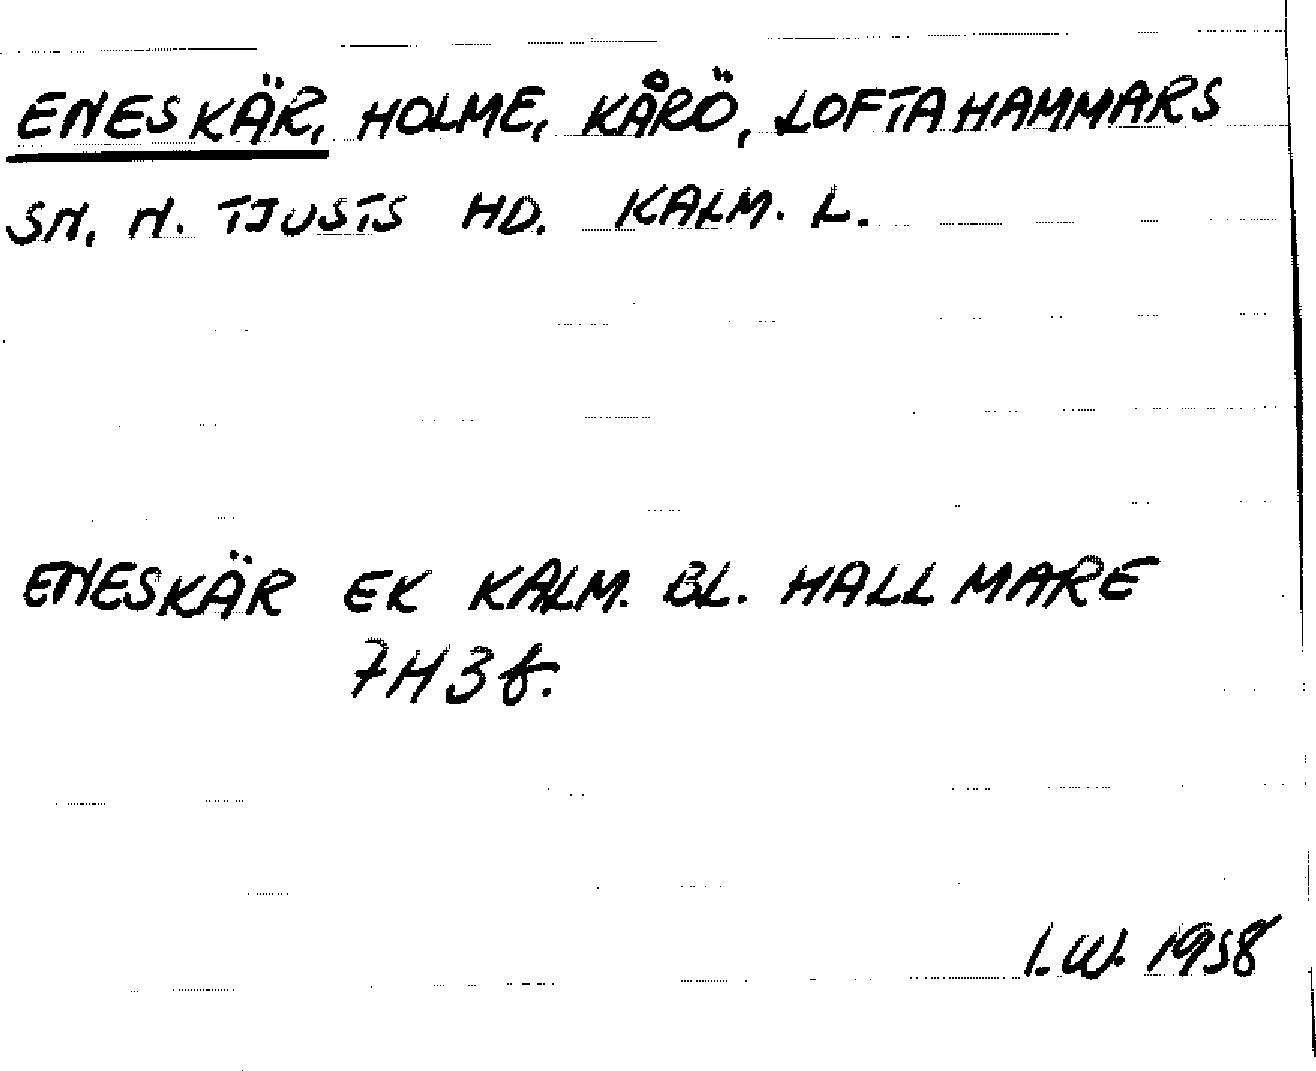 ENESKÄR, HOLME, KÅRÖ, LOFTAHAMMARS
SN. N. TJUSTS HD. KALM. L.
ENESKÄR EK KALM. BL. HALLMARE
7H3f.
I.W. 1958